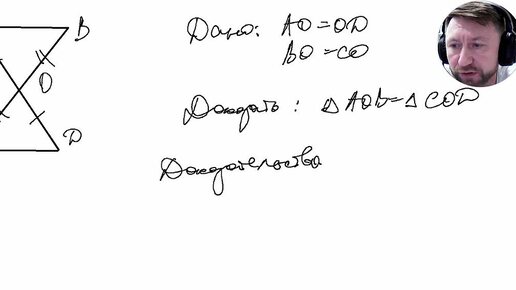 B
Дано: AO=OD
BO=CO
O
Доказать: △AOB=△COD
D
Доказательство